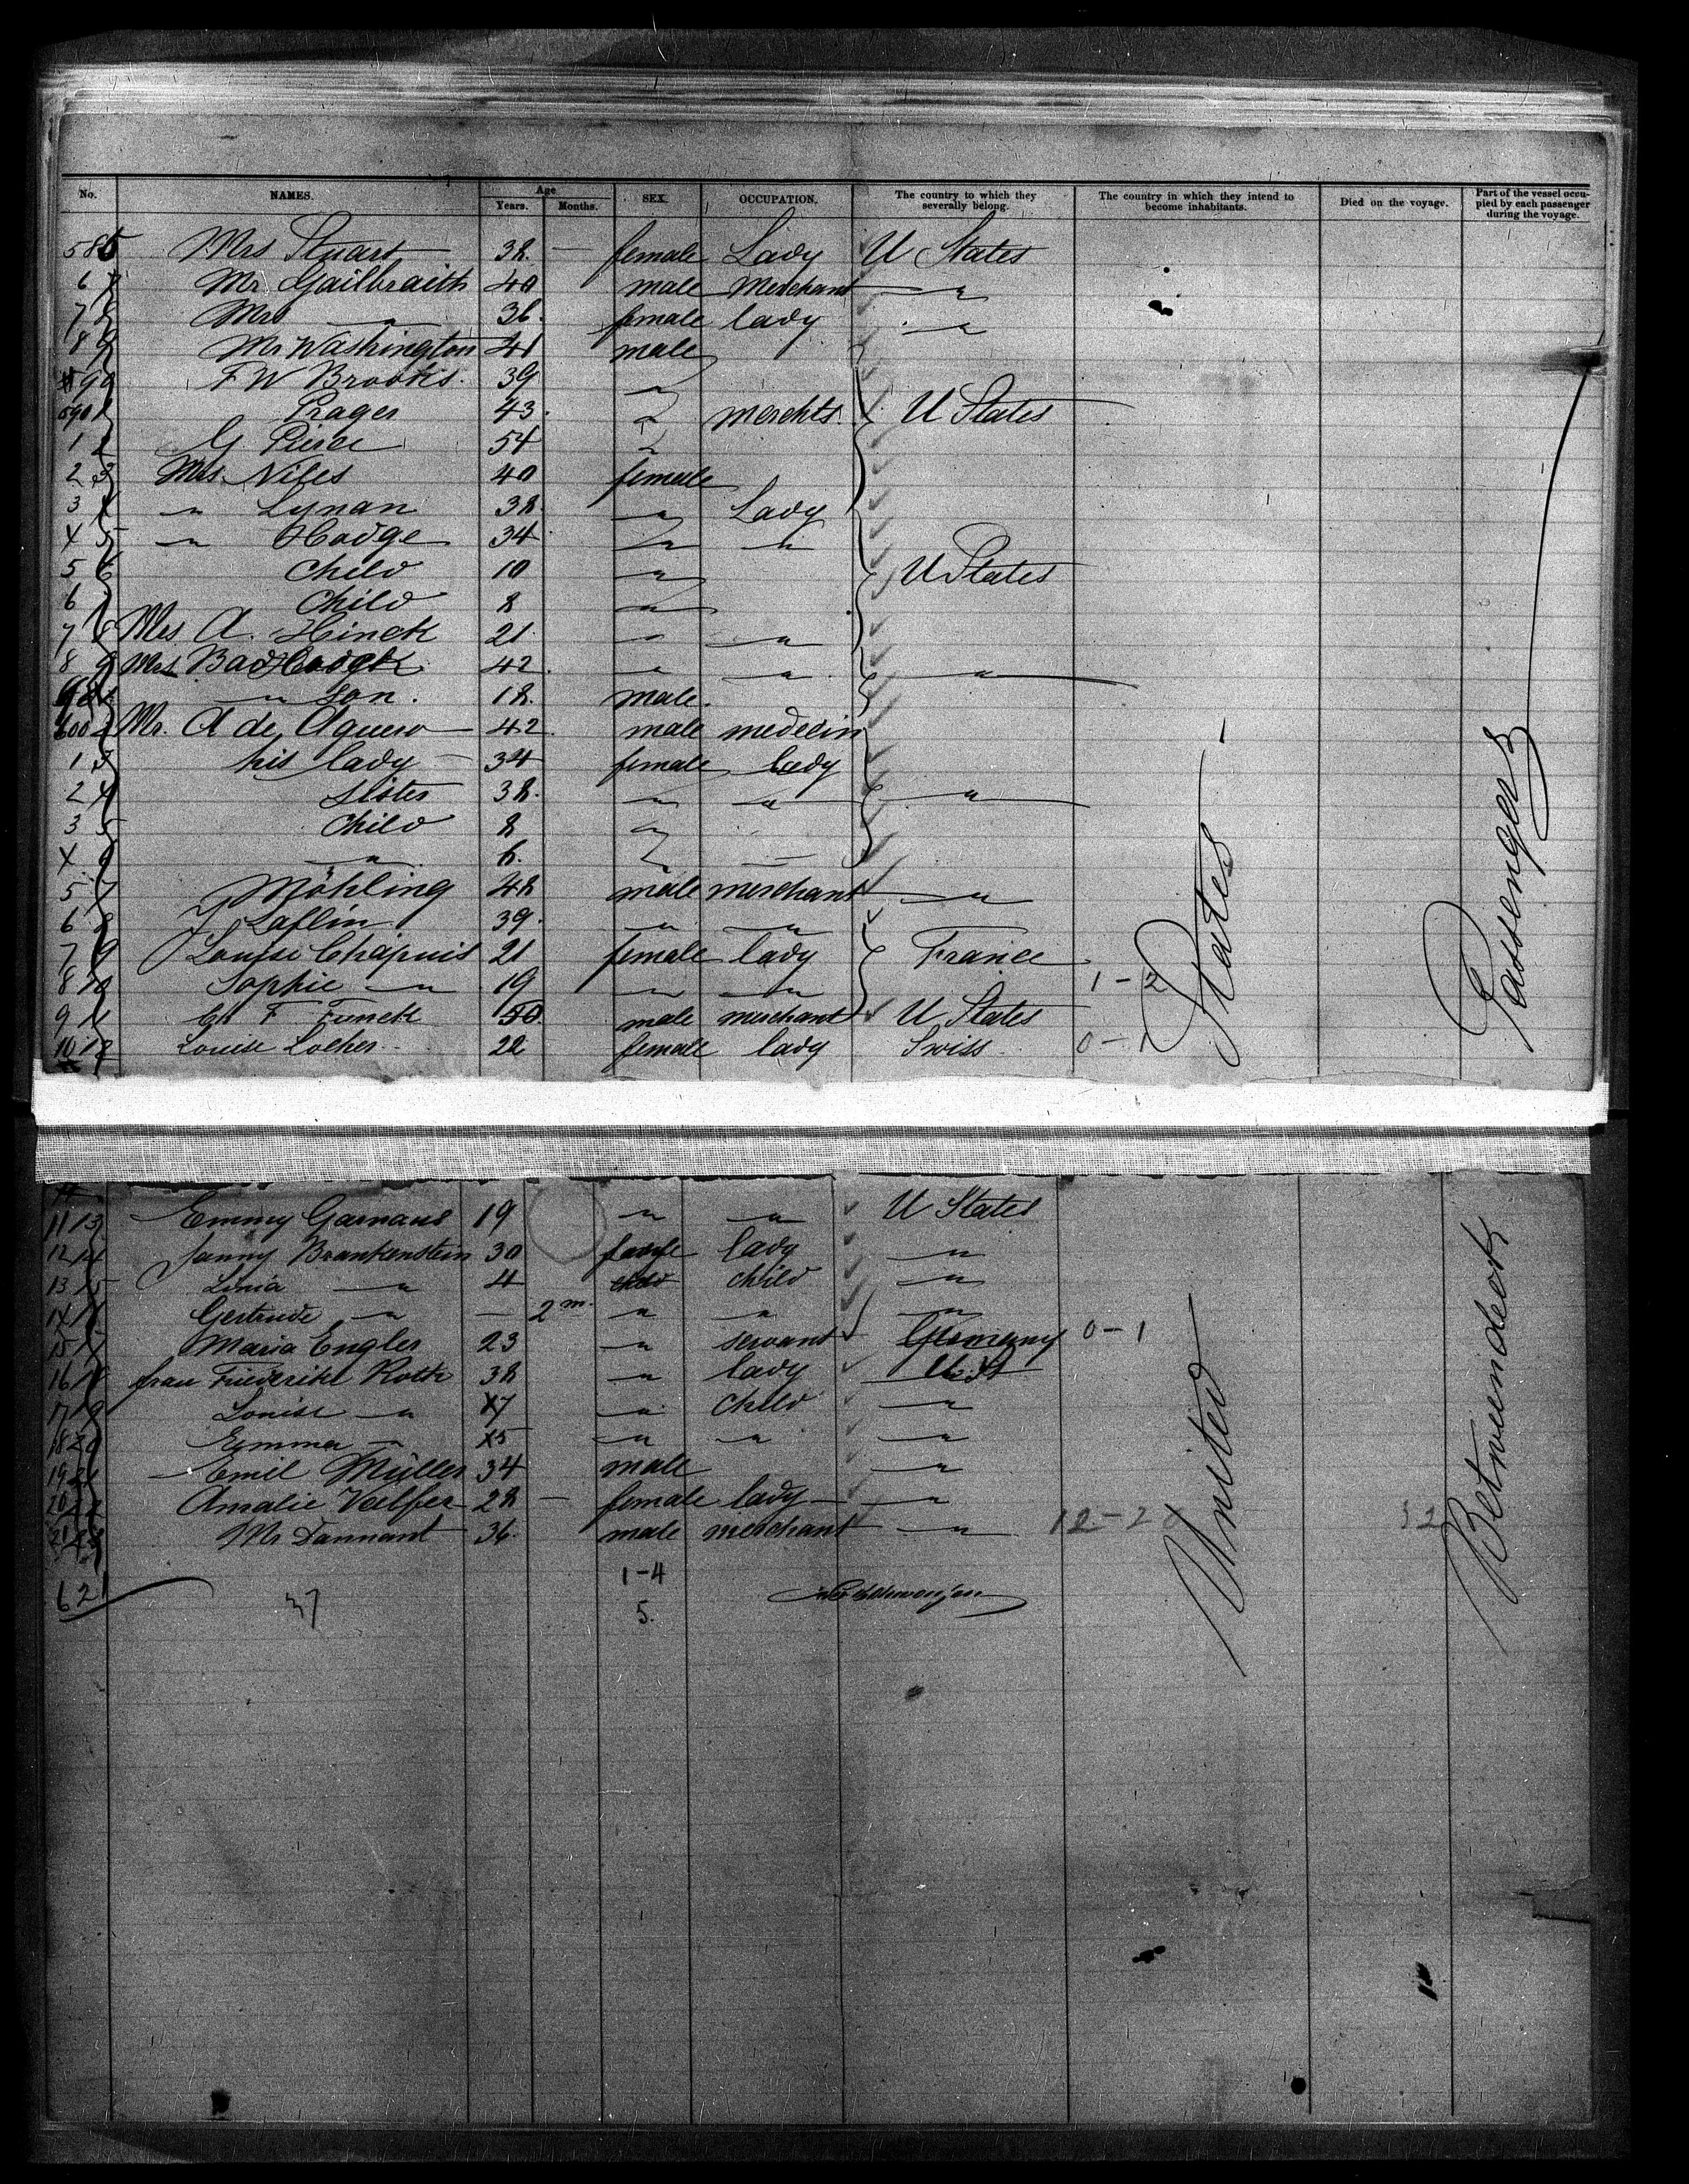 No. NAMES. Age Years. Months. SEX. OCCUPATION. The country to which they severally belong. The country in which they intend to become inhabitants. Died on the voyage. Part of the vessel occupied by each passenger during the voyage.
585 Mrs Stuart 38. — female Lady U States
6 Mr Gailbraith 40 male Merchant "
7 Mrs " 36. female lady "
8 Mr Washington 41 male
9 F W Brooks. 39 "
590 Prager 43. " merchts. U States
1 G. Pierce 54 "
2 Mrs. Niles 40 female
3 " Lyman 38. " Lady
4 " Hodge 34 " "
5 Child 10 " U States
6 Child 8 "
7 Mrs A. Hinck 21. " "
8 Mrs 42. " " "
" son. 18. male.
600 Mr. A de Aguero 42. male medecin
1 his lady — 34 female lady
2 sister 38. " " "
3 Child 8 "
4 " 6. "
5 Möhling 48 male merchant "
6 J Laflin 39. " "
7 Louise Chapuis 21 female lady France
8 Sophie " 19 " " 1-2
9 F Funck 50. male merchant U States
10 Louise Locher 22 female lady Swiss 0-
11 Emmy Garnaus 19 " " U States
12 Fanny Brankenstein 30 lady "
13 Linia " 4 child "
14 Gertrude " — 2 m. " " "
15 Maria Engler 23 " servant Germany 0-1
16 frau Friederike Roth 38 " lady U. St
17 Louise " 7 " Child "
18 Emma " 5 " " "
19 Emil Müller 34 male "
20 Amalie 28 — female lady — "
21 Mr Tannant 36. male merchant " 12-2 32
621 37 1-4
5.
United States
Betweendeck Passengers